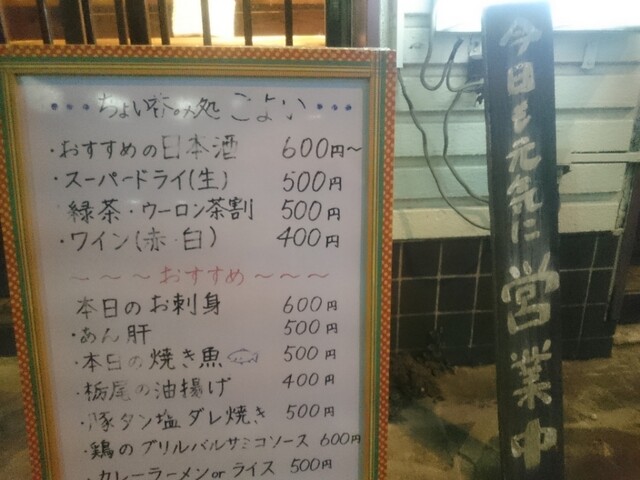 ちょい呑み処 こよい
・おすすめの日本酒 600円〜
・スーパードライ(生) 500円
緑茶・ウーロン茶割 500円
・ワイン(赤・白) 400円
〜〜〜おすすめ〜〜〜
本日のお刺身 600円
・あん肝 500円
・本日の焼き魚 500円
・栃尾の油揚げ 400円
・豚タン塩ダレ焼き 500円
・鶏のグリルバルサミコソース 600円
・カレーラーメンorライス 500円
今日も元気に営業中